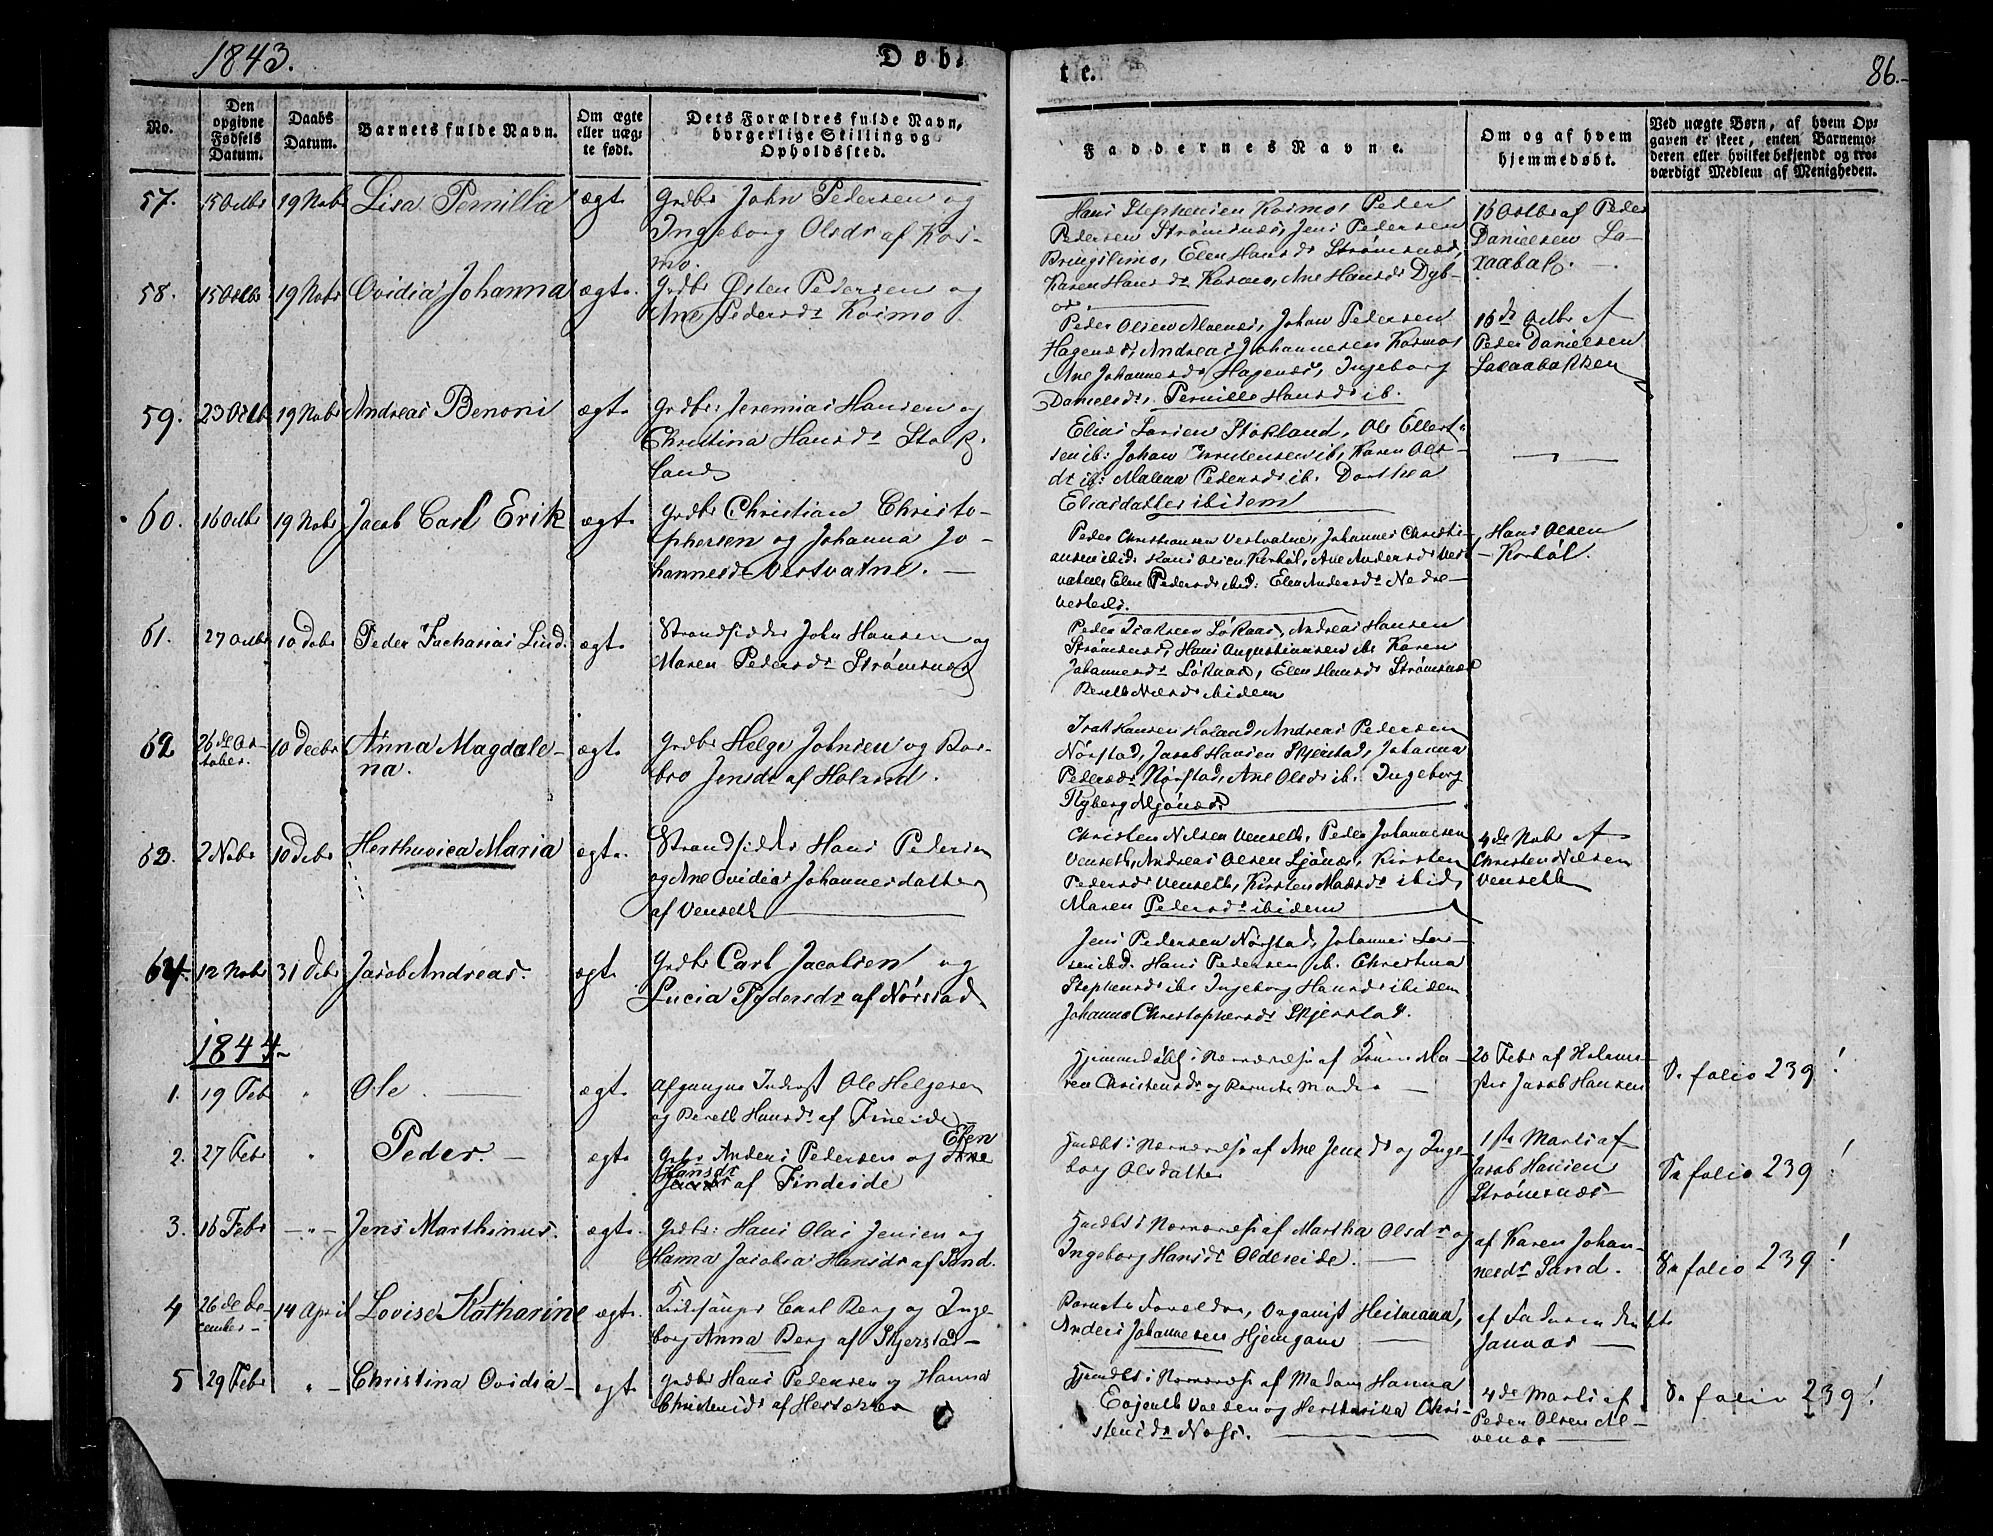 1843.
Døb-
te.
86.
No.
Den opgivne Fødsels Datum.
Daabs Datum.
Barnets fulde Navn.
Om ægte eller uæg- te født.
Dets Forældres fulde Navn, borgerlige Stilling og Opholdssted.
Faddernes Navne.
Om og af hvem hjemmedøbt.
Ved uægte Børn, af hvem Op- gaven er skeet, enten Barnemo- deren eller hvilket bekjendt og tro- værdigt Medlem af Menigheden.
57. 15 Octbr 19 Nobr Lisa Pernilla ægt. Grdbr John Pedersen og
Ingeborg Olsdr af Kos-
mo.
Hans Stephensen Kosmo, Peder
Pedersen Strømsnæs, Jens Pedersen
Bringslimo, Elen Hansdr Strømsnæs,
Karen Hansdr Kosmo, Ane Hansdr Dyb-
16 Octbr af Peder
Danielsen La-
xaabak.
58. 15 Octbr 19 Nobr Ovidia Johanna ægt. Grdbr Østen Pedersen og
Ane Pedersdr Kosmo
Peder Olsen Moenes, Johan Pedersen
Hagenæs, Andreas Johannesen Kosmo,
Ane Johannesdr Hagenæs, Ingeborg
Danielsdr, Pernille Hansdr ib.
16de Octbr af
Peder Danielsen
Laxaabakken
59. 23 Octb 19 Nobr Andreas Benoni ægt. Grdbr: Jeremias Hansen og
Christina Hansdr Stok-
land
Elias Larsen Stokland, Ole Ellert-
sen ib: Johan Christensen ib, Karen Ols-
dr ib: Malena Pedersdr ib. Dorthea
Eliasdatter ibidem
60. 16 Octbr 19 Nobr Jacob Carl Erik ægt. Grdbr Christian Christo-
phersen og Johanna Jo-
hannesdr Vestvatne.
Peder Christiansen Vestvatne, Johannes Christi-
ansen ibid: Hans Olsen Korhøl, Ane Andersdr Vest-
vatne, Elen Pedersdr ibid: Elen Andersdr Nedre-
Hans Olsen
Korhøl.
61. 27 Octbr 10 Debr Peder Zacharias Lind. ægt. Strandsidder John Hansen og
Maren Pedersdr Strømsnæs
Peder Isaksen Løkaas, Andreas Hansen
Strømsnæs, Hans Augustinusen ib: Karen
Johannesdr Løkaas, Elen Hansdr Strømsnæs
Bereth Nielsdr ibidem
62 26de Oc-
tober. 10 Decbr Anna Magdale-
na. ægt. Grdbr Helge Johnsen og Bar-
bro Jensdr af Holand.
Isak Hansen Holand, Andreas Pedersen
Nørstad, Jacob Hansen Skjerstad, Johanna
Pedersdr Nørstad, Ane Olsdr ib. Ingeborg
Ryberg Mjønæs
63. 2 Nobr 10 Debr Herthuvica Maria ægt. Strandsidder Hans Pedersen
og Ane Ovidia Johannesdatter
af Venseth
Christen Nilsen Venseth, Peder Johannesen
Venseth, Andreas Olsen Ljønæs, Kirsten
Pedersdr Venseth, Kirsten Madsdr ibid,
Maren Pedersdr ibidem
4de Nobr af
Christen Nilsen
Venseth
64. 12 Nobr 31 Debr Jacob Andreas. ægt. Grdbr Carl Jacobsen og
Lucia Pedersdr af Nørstad
Jens Pedersen Nørstad, Johannes Lar-
sen ibd. Hans Pedersen ib. Christina
Stephensdr ib: Ingeborg Hansdr ibidem
Johanna Christophersdr Skjerstad.
1844
1. 19 Feb " Ole. ægt. Afgangne Inderst Ole Helgesen
og Bereth Hansdr af Fineide
Hjemmedøbt i Nærværelse af Ma-
ren Christensdr og Barnets Moder
20 Febr af
Jacob Hansen
Vi folio 239!
2. 27 Febr " Peder. ægt. Grbr Anders Pedersen og Elen
Hansdr af Findeide
Hmdbt i Nærværelse af Ane Jensdr og Inge-
borg Olsdatter
1ste Marts af
Jacob Hansen
Strømsnæs
Vi folio 239!
3. 16 Febr " Jens Marthinus. ægt. Grdbr: Hans Olai Jensen og
Hanna Jacobia Hansdr af Sand.
Hmdbt i Nærværelse af Martha Olsdr og
Ingeborg Hansdr Oldereide.
af Karen Johan-
nesdr Sand.
Vi folio 239!
4 26de De-
cember 14 April Lovise Katharine ægt. Kirkesanger Carl Berg og Inge-
borg Anna Berg af Skjerstad
Barnets Forældre, Organist Heitmann,
Anders Johannesen Hjemgam
af Faderen den 1ste
Januar
5 29 Febr " Christina Ovidia ægt. Grdbr Hans Pedersen og Hanna
Christensdr af
Hjemdbt i Nærværelse af Madam Hanna
Hertharika Chri-
stensdr
4de Marts af
Peder Olsen Al-
venæs
Vi folio 239!